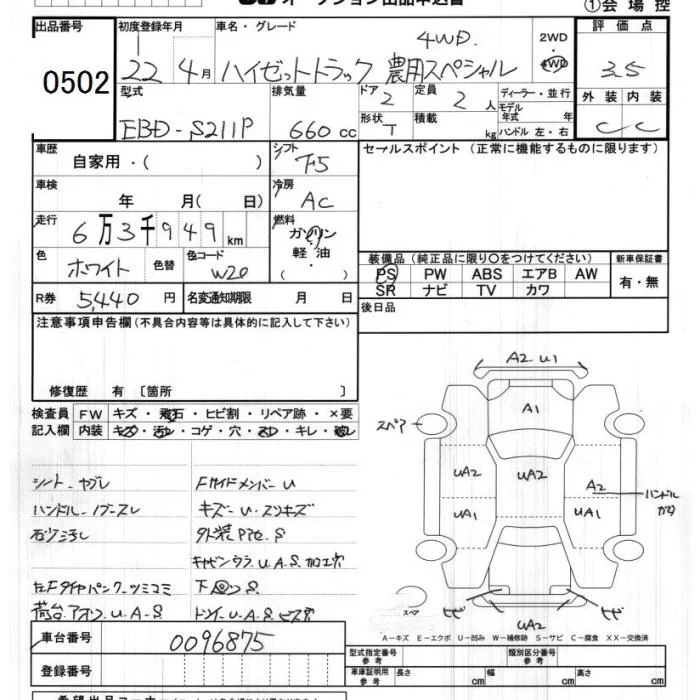 オークション出品申込書
①会場控
出品番号 初度登録年月 車名・グレード 評価点
0502
22 4月 ハイゼットトラック 農用スペシャル 4WD. 2WD ・ 4WD 3.5
型式 排気量 ドア 2 定員 2 人 ディーラー・並行 外装 内装
EBD-S211P 660 cc 形状 T 積載 kg モデル年式 年 ハンドル 左・右 C C
車歴 自家用・( ) シフト F5 セールスポイント (正常に機能するものに限ります)
車検 年 月( 日) 冷房 AC
走行 6万3千949 km 燃料 ガソリン 軽油 ・( )
色 ホワイト 色替 色コード W20
装備品 (純正品に限り○をつけてください) 新車保証書
PS PW ABS エアB AW 有・無
SR ナビ TV カワ
R券 5,440 円 名変通知期限 月 日
後日品
注意事項申告欄 (不具合内容等は具体的に記入して下さい)
修復歴 有 〔箇所 〕
検査員 FW キズ・飛石・ヒビ割・リペア跡・×要
記入欄 内装 キズ・汚レ・コゲ・穴・スレ・キレ・破レ
シート-ヤブレ
Fサイドメンバー U
キズ-U-スリキズ
外装 S
キャビンウラ U.A.S. 加工穴
下回 S
荷台.アオリ.U-A-S
A2 U1
A1
スペア
UA2 UA2 A2
ハンドル
UA1 UA1
スペア ヒビ ヒビ
UA2
A-キズ E-エクボ U-凹み W-補修跡 S-サビ C-腐食 XX-交換済
車台番号 0096875
登録番号
型式指定番号 参考 類別区分番号 参考
車庫証明用 参考 長さ cm 幅 cm 高さ cm